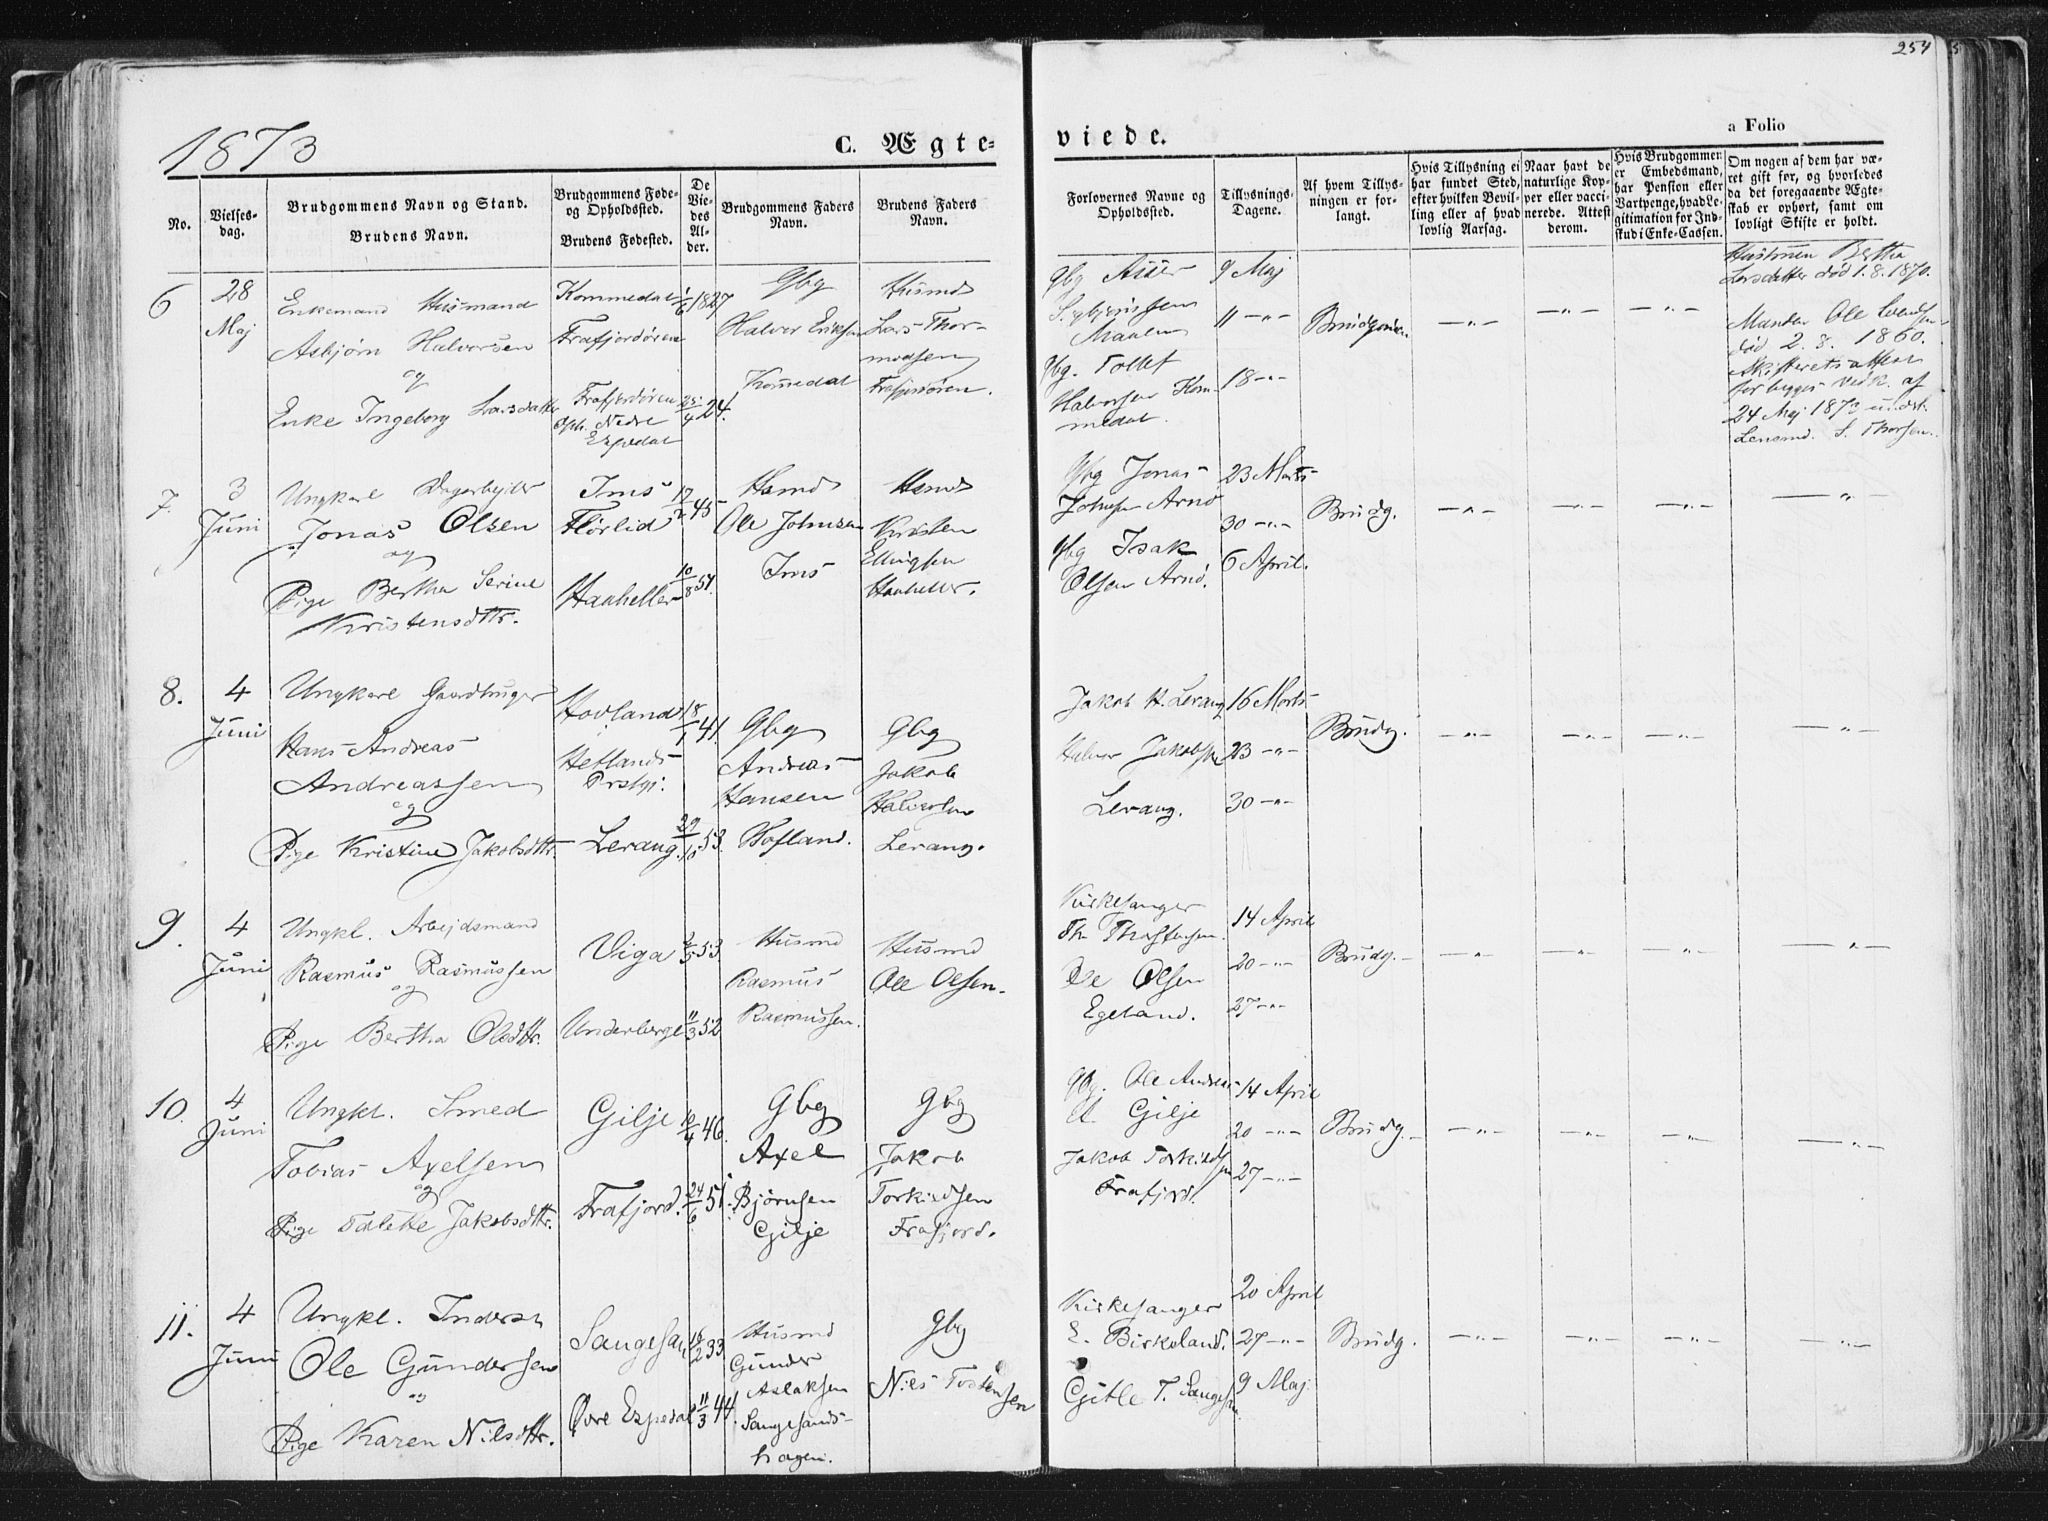 254
1873
C. Ægte-
viede.
a Folio
No.
Vielses-
dag.
Brudgommens Navn og Stand.
Brudens Navn.
Brudgommens Føde-
og Opholdssted.
Brudens Fødested.
De
Vie-
des
Al-
der.
Brudgommens Faders
Navn.
Brudens Faders
Navn.
Forlovernes Navne og
Opholdssted.
Tillysnings-
Dagene.
Af hvem Tillys-
ningen er for-
langt.
Hvis Tillysning ei
har fundet Sted,
efter hvilken Bevil-
ling eller af hvad
lovlig Aarsag.
Naar havt de
naturlige Kop-
per eller vacci-
nerede. Attest
derom.
Hvis Brudgommen
er Embedsmand,
har Pension eller
Vartpenge, hvad Le-
gitimation for Ind-
skud i Enke-Cassen.
Om nogen af dem har væ-
ret gift før, og hvorledes
da det foregaaende Ægte-
skab er ophørt, samt om
lovligt Skifte er holdt.
6
28
Maj
Enkemand Husmand
Asbjørn Halvorsen
og
Enke Ingeborg Larsdatter
Kommedal
Frafjordøren
Frafjordøren
Oph. Nedre
Espedal
1/6 1827
25/4 24.
Gbg
Halvor Eriksen
Kommedal
Husmd
Lars Thor-
modsen
Frafjordøren.
Gbg Asser
Maalen
Gbg. Tollef
Halvorsen Kom-
medal.
9 Maj
11 -"-
18 -"-
Brudgommen
-"-
-"-
-"-
Hustruen Bertha
Larsdatter død 1.8.1870.
Manden Ole
død 2.8.1860.
Skifteretsattest
for begges vedk. af
24 Maj 1873 udst.
Lensmd. S. Thorsen.
7.
3
Juni
Ungkarl Dagarbejder
Jonas Olsen
og
Pige Bertha Serine
Kristensdttr.
Ims
Flørlid
Haaheller
17/2 45
10/8 51.
Husmd
Ole Johnsen
Ims
Husmd
Kristen
Ellingsen
Haaheller.
Gbg Jonas
Johnsen Arnø
Gbg Isak
Olsen Arnø.
23 Marts
30 -"-
6 April.
Brudg.
-"-
-"-
-"-
-"-
8.
4
Juni
Ungkarl Gaardbruger
Hans Andreas
Andreassen
og
Pige Kristine Jakobsdttr.
Hovland
Hetlands
Prstgj.
Lerang.
18/1 41.
29/10 53.
Gbg
Andreas
Hansen
Hofland.
Gbg
Jakob
Halvorsen
Lerang.
Jakob H. Lerang
Halvor Jakobsen
Lerang.
16 Marts
23 -"-
30 -"-
Brudg.
-"-
-"-
-"-
-"-
9.
4
Juni
Ungkl. Arbejdsmand
Rasmus Rasmussen
og
Pige Bertha Olsdttr.
Viga
Underberge
2/5 53
11/3 52
Husmd
Rasmus
Rasmussen.
Husmd
Ole Olsen.
Kirkesanger
Ole Olsen
Egeland.
14 April
20 -"-
27 -"-
Brudg.
-"-
-"-
-"-
-"-
10.
4
Juni
Ungkl. Smed
Tobias Axelsen
og
Pige Talette Jakobsdttr.
Gilje
Frafjord.
12/4 46.
24/6 51.
Gbg
Axel
Bjørnsen
Gilje
Gbg
Jakob
Torkildsen
Frafjord.
Gbg. Ole Andreas
A. Gilje
Jakob Torkildsen
Frafjord.
14 April
20 -"-
27 -"-
Brudg.
-"-
-"-
-"-
-"-
11.
4
Juni
Ungkl. Inderst
Ole Gundersen
og
Pige Karen Nilsdttr.
Sangesan
Øvre Espedal
18/2 33
11/3 44.
Husmd
Gunder
Aslaksen
Sangesands-
hagen.
Gbg
Nils Tostensen
Kirkesanger
E. Birkeland.
Gitle T. Sangesan.
20 April
27 -"-
9 Maj
Brudg.
-"-
-"-
-"-
-"-